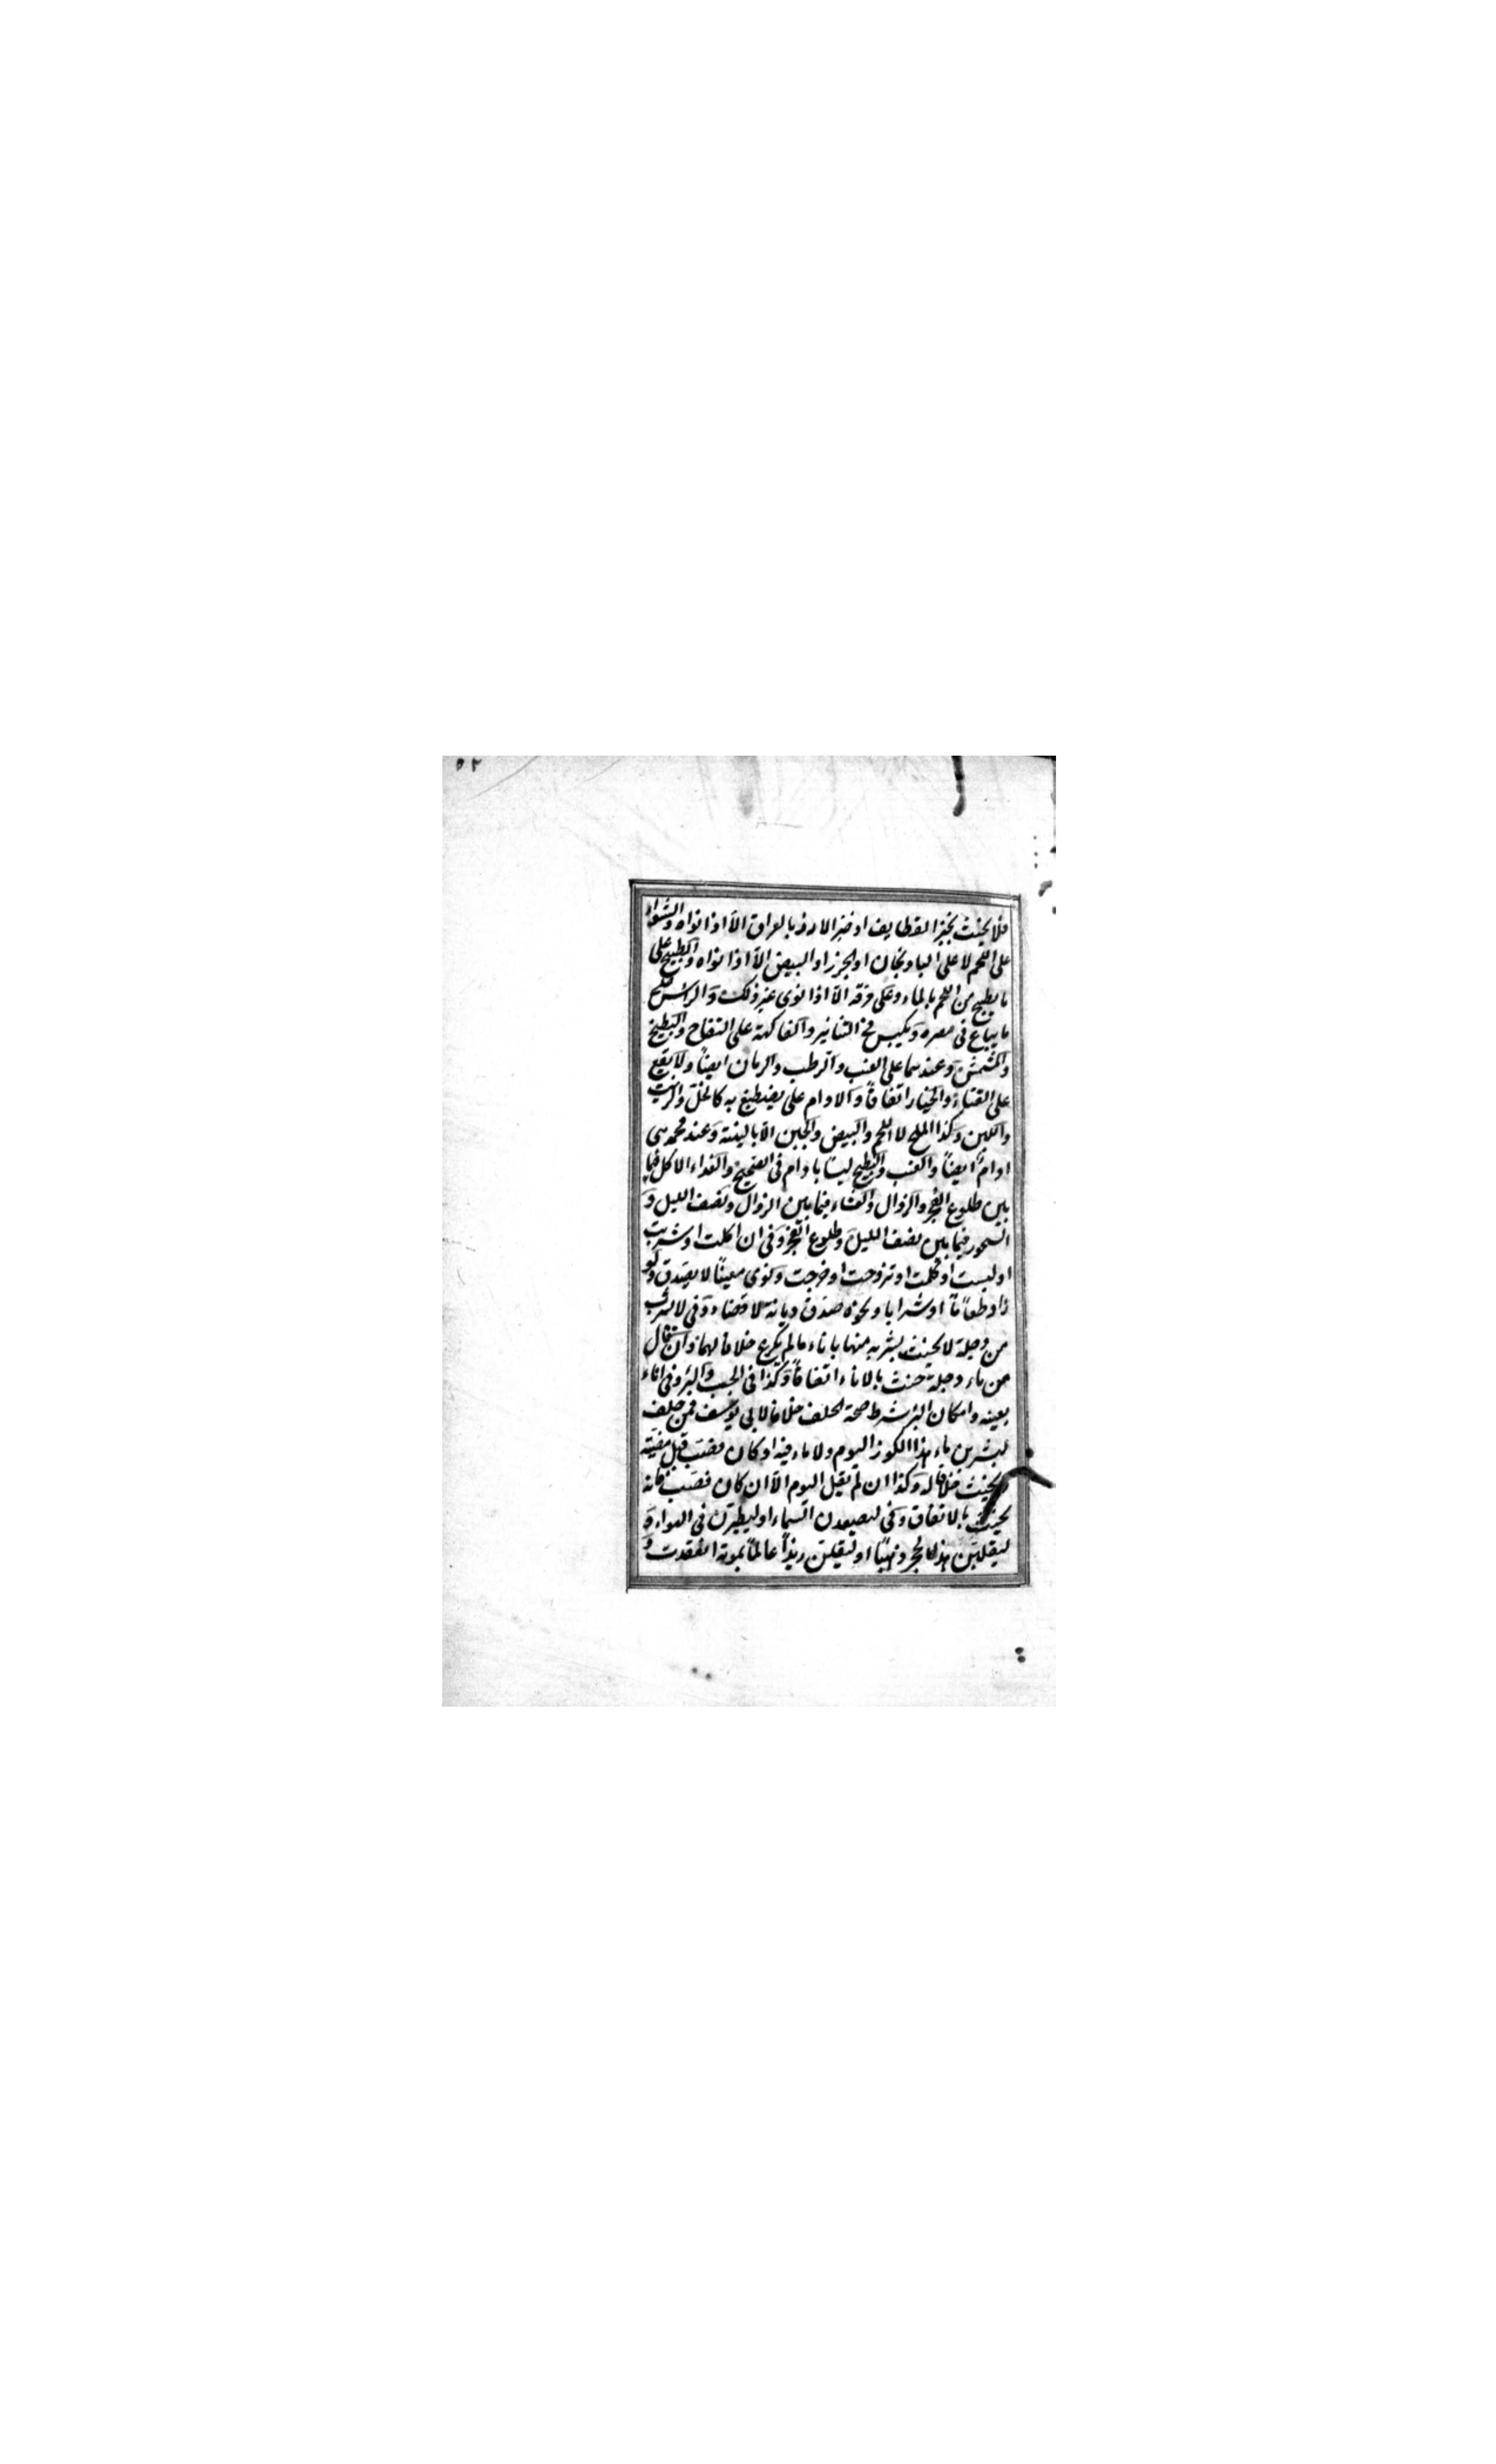 ٥٢
فلا يحنث بخبز القطايف او خبز الارز بالعراق الا اذا نواه والشواء
على اللحم لا على الباذنجان او الجزر او البيض الا اذا نواه والطبيخ على
ما يطبخ من اللحم بالماء وعلى مرقه الا اذا نوى غير ذلك والرأس على
ما يباع في مصره ويكبس في التنانير والفاكهة على التفاح والبطيخ
والمشمش وعندهما على العنب والرطب والرمان ايضاً ولا يقع
على القثاء والخيار اتفاقاً والادام على يصطبغ به كالخل والزيت
واللبن وكذا الملح لا اللحم والبيض والجبن الا بالنية وعند محمد هي
ادام ايضاً والعنب والبطيخ ليسا بادام في الصحيح والغداء الاكل فيما
بين طلوع الفجر والزوال والعشاء فيما بين الزوال ونصف الليل و
السحور فيما بين نصف الليل وطلوع الفجر وفي ان اكلت او شربت
او لبست او كلمت او تزوجت او خرجت ونوى معيناً لا يصدق ولو
زاد طعاماً او شرابا ونحوه صدق ديانة لا قضاء وفي لا يشرب
من دجلة لا يحنث بشربه منها باناء ما لم يكرع خلافا لهما وان قال
من ماء دجلة حنث بالاناء اتفاقاً وكذا في الجب والبئر وفي اناء
بعينه وامكان البر شرط صحة الحلف خلافا لابي يوسف فمن حلف
ليشربن ماء هذا الكوز اليوم ولا ماء فيه او كان فصب قبل مضيه
لا يحنث خلافا له وكذا ان لم يقل اليوم الا ان كان فصب فانه
يحنث بالاتفاق وفي ليصعدن السماء او ليطيرن في الهواء و
ليقلبن هذا الحجر ذهباً او ليقتلن زيداً عالماً بموته انعقدت و